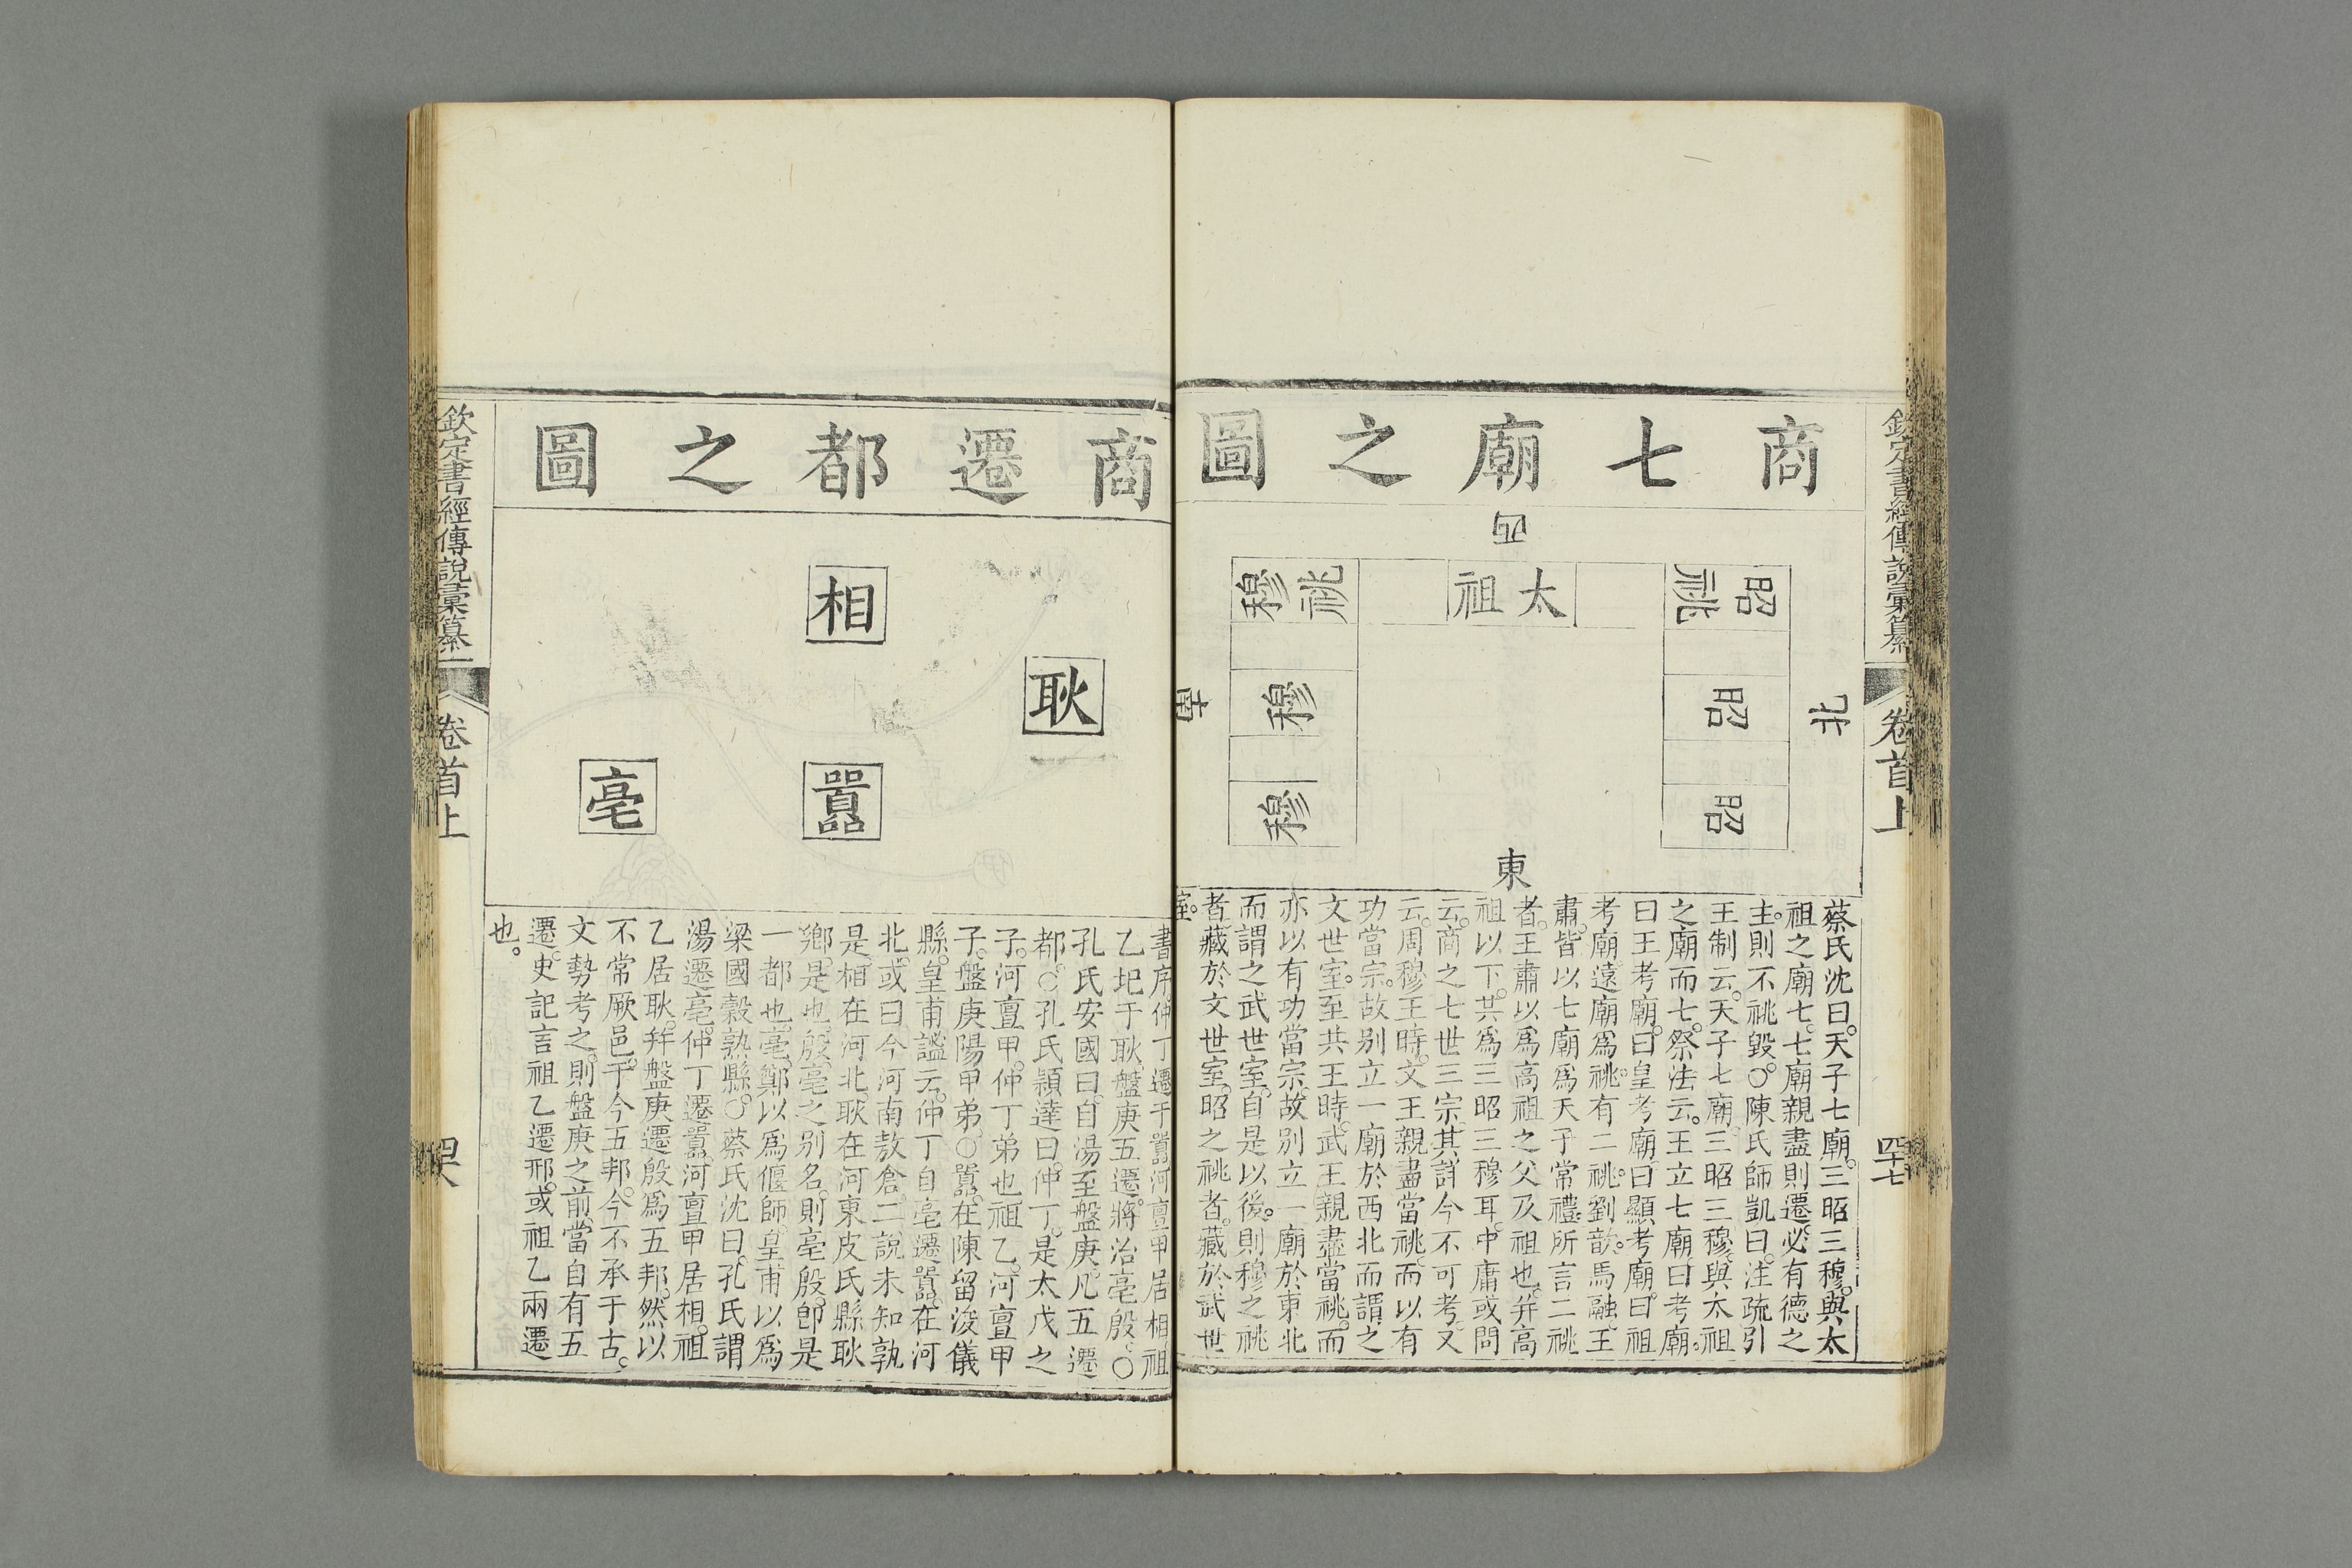 欽定書經傳說彙纂
卷首上
四十七
商七廟之圖
西
昭祧
太祖
祧穆
昭
穆
北
南
昭
穆
東
蔡氏沈曰。天子七廟。三昭三穆。與太
祖之廟七。七廟親盡則遷。必有德之
主。則不祧毀。○陳氏師凱曰。注疏引
王制云。天子七廟。三昭三穆。與太祖
之廟而七。祭法云。王立七廟曰考廟。
曰王考廟。曰皇考廟。曰顯考廟。曰祖
考廟。遠廟爲祧。有二祧。劉歆。馬融。王
肅。皆以七廟爲天子常禮。所言二祧
者。王肅以爲高祖之父及祖也。幷高
祖以下。共爲三昭三穆耳。中庸或問
云。商之七世三宗。其詳今不可考。又
云。周穆王時。文王親盡當祧。而以有
功當宗。故别立一廟於西北而謂之
文世室。至共王時。武王親盡當祧。而
亦以有功當宗。故别立一廟於東北
而謂之武世室。自是以後。則穆之祧
者。藏於文世室。昭之祧者。藏於武世
室。
商遷都之圖
相
耿
囂
亳
書序。仲丁遷于囂。河亶甲居相。祖
乙圯于耿。盤庚五遷。將治亳殷。○
孔氏安國曰。自湯至盤庚。凡五遷
都。○孔氏穎達曰。仲丁。是太戊之
子。河亶甲。仲丁弟也。祖乙。河亶甲
子。盤庚。陽甲弟。○囂。在陳留浚儀
縣。皇甫謐云。仲丁自亳遷囂。在河
北。或曰今河南敖倉。二說未知孰
是。相在河北。耿在河東皮氏縣耿
鄉。是也。殷。亳之别名。則亳殷。卽是
一都也。亳。鄭以爲偃師。皇甫以爲
梁國穀熟縣。○蔡氏沈曰。孔氏謂
湯遷亳。仲丁遷囂。河亶甲居相。祖
乙居耿。幷盤庚遷殷爲五邦。然以
不常厥邑。于今五邦。今不承于古。
文勢考之。則盤庚之前。當自有五
遷。史記言祖乙遷邢。或祖乙兩遷
也。
欽定書經傳說彙纂
卷首上